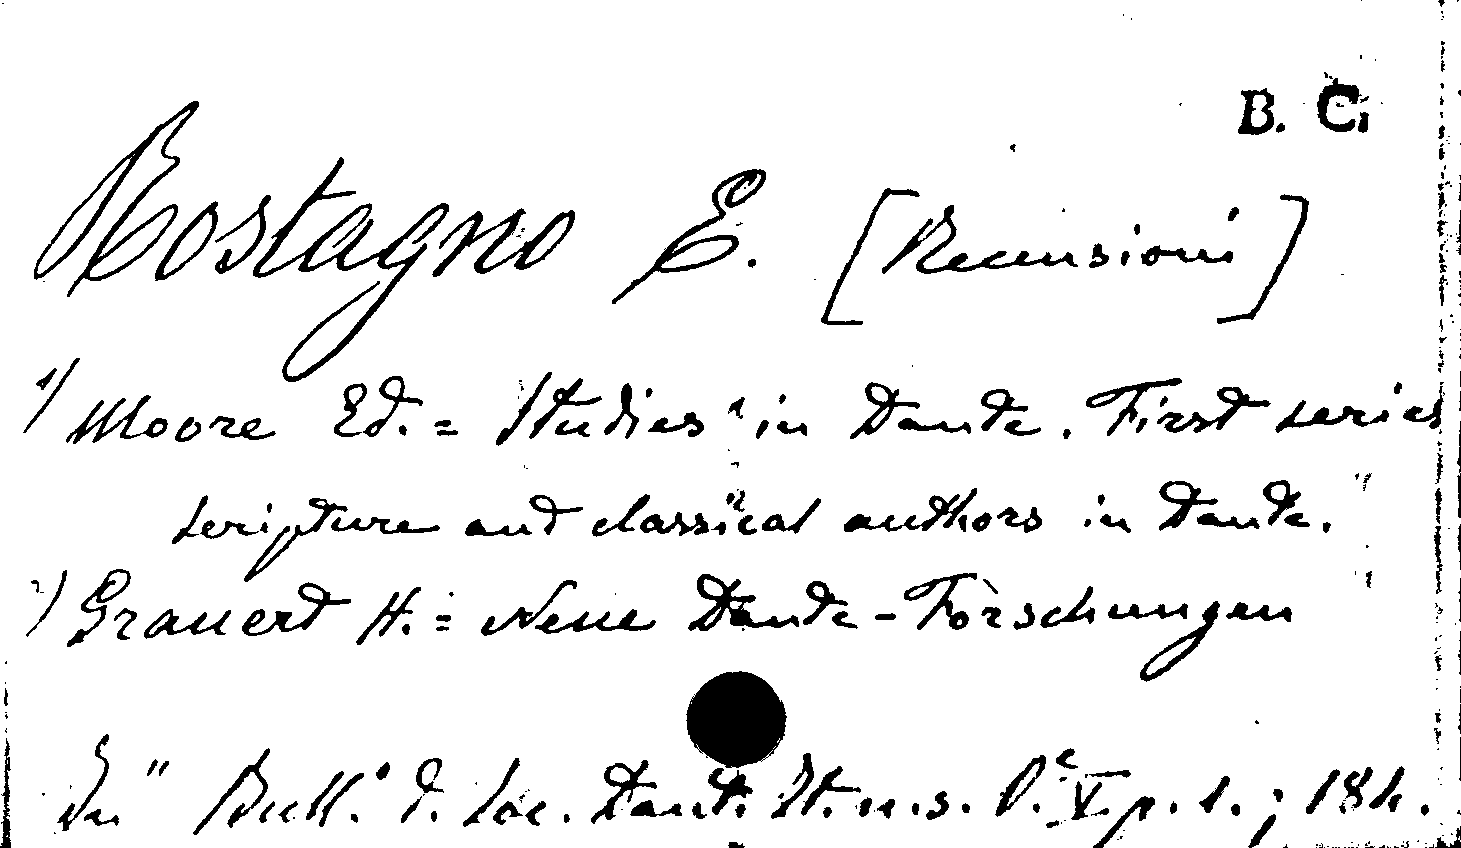 B. C.
Rostagno E. [Recensioni]
1) Moore Ed. = Studies in Dante. First series
scripture and classical authors in Dante."
2) Grauert H. = Neue Dante-Forschungen
In "Bull.° d. Soc. Dant. It. n. s. V. p. 1. ; 184.